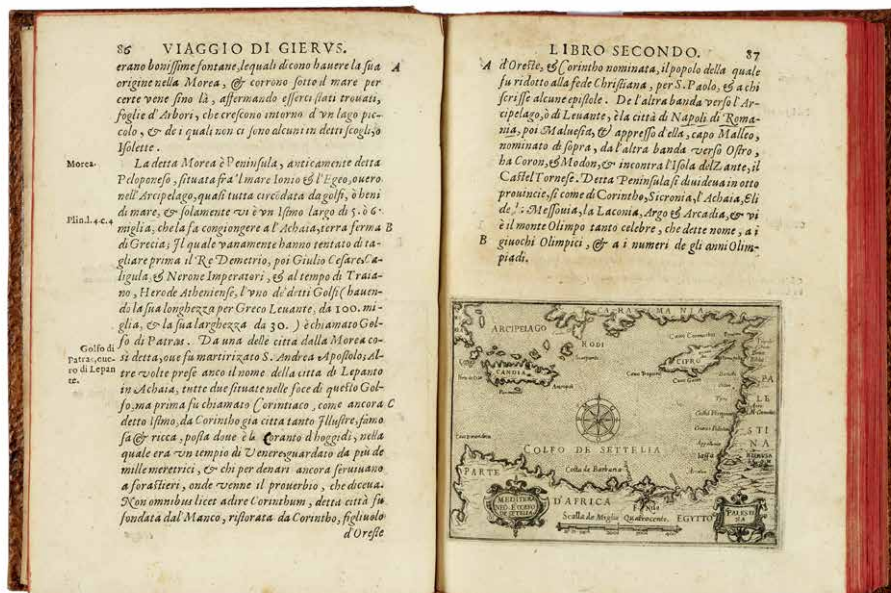 86 VIAGGIO DI GIERVS.
erano bonissime fontane, lequali dicono hauere la sua A
origine nella Morea, & corrono sotto il mare per
certe vene sino là, affermando esserci stati trouati,
foglie d'Arbori, che crescono intorno d'vn lago pic-
colo, & de i quali non ci sono alcuni in detti scogli, o
Isolette.
Morea.
La detta Morea è Peninsula, anticamente detta
Peloponeso, situata frà l mare Ionio & l'Egeo, ouero
nell'Arcipelago, quasi tutta circōdata da golfi, ò beni
Plin.l.4.c.4
di mare, & solamente vi è vn Istmo largo di 5. ò 6.
miglia, che la fa congiongere a l'Achaia, terra ferma B
di Grecia; Il quale vanamente hanno tentato di ta-
gliare prima il Re Demetrio, poi Giulio Cesare, Ca-
ligula, & Nerone Imperatori, & al tempo di Traia-
no, Herode Atheniense, l'vno de' detti Golfi (hauen-
do la sua longhezza per Greco Leuante, da 100. mi-
glia, & la sua larghezza da 30.) è chiamato Gol-
Golfo di
Patras, oue-
ro di Lepan
te.
fo di Patras. Da una delle citta dalla Morea co-
sì detta, oue fu martirizato S. Andrea Apostolo; Al-
tre volte prese anco il nome della citta di Lepanto
in Achaia, tutte due situate nelle foce di questo Gol-
fo, ma prima fu chiamato Corintiaco, come ancora C
detto Istmo, da Corintho gia citta tanto Illustre, famo
sa & ricca, posta doue è la Coranto d'hoggidi, nella
quale era vn tempio di Venere guardato da più de
mille meretrici, & chi per denari ancora seruiuano
a forastieri, onde venne il prouerbio, che diceua.
Non omnibus licet adire Corinthum, detta città fu
fondata dal Manco, ristorata da Corintho, figliuolo
d'Oreste
LIBRO SECONDO. 87
A d'Oreste, & Corintho nominata, il popolo della quale
fu ridotto alla fede Christiana, per S. Paolo, & a chi
scrisse alcune epistole. De l'altra banda verso l'Ar-
cipelago, ò di Leuante, è la città di Napoli di Roma-
nia, poi Maluesia, & appresso d'ella, capo Malleo,
nominato di sopra, da l'altra banda verso Ostro,
ha Coron, & Modon, & incontra l'Isola del Zante, il
Castel Tornese. Detta Peninsula si diuideua in otto
prouincie, si come di Corintho, Sicronia, l'Achaia, Eli
de, Messouia, la Laconia, Argo & Arcadia, & vi
è il monte Olimpo tanto celebre, che dette nome, a i
B giuochi Olimpici, & a i numeri de gli anni Olim-
piadi.
CARAMANIA
ARCIPELAGO
RODI
CANDIA
CIPRO
PALESTINA
GOLFO DE SETTELIA
PARTE
Costa de Barbaria
D'AFRICA
Nilo
EGYTTO
MEDITERA
NEO, E VERSO
DE SETTELIA
Scalla de Miglia Quatrocento.
PALESTI
NA